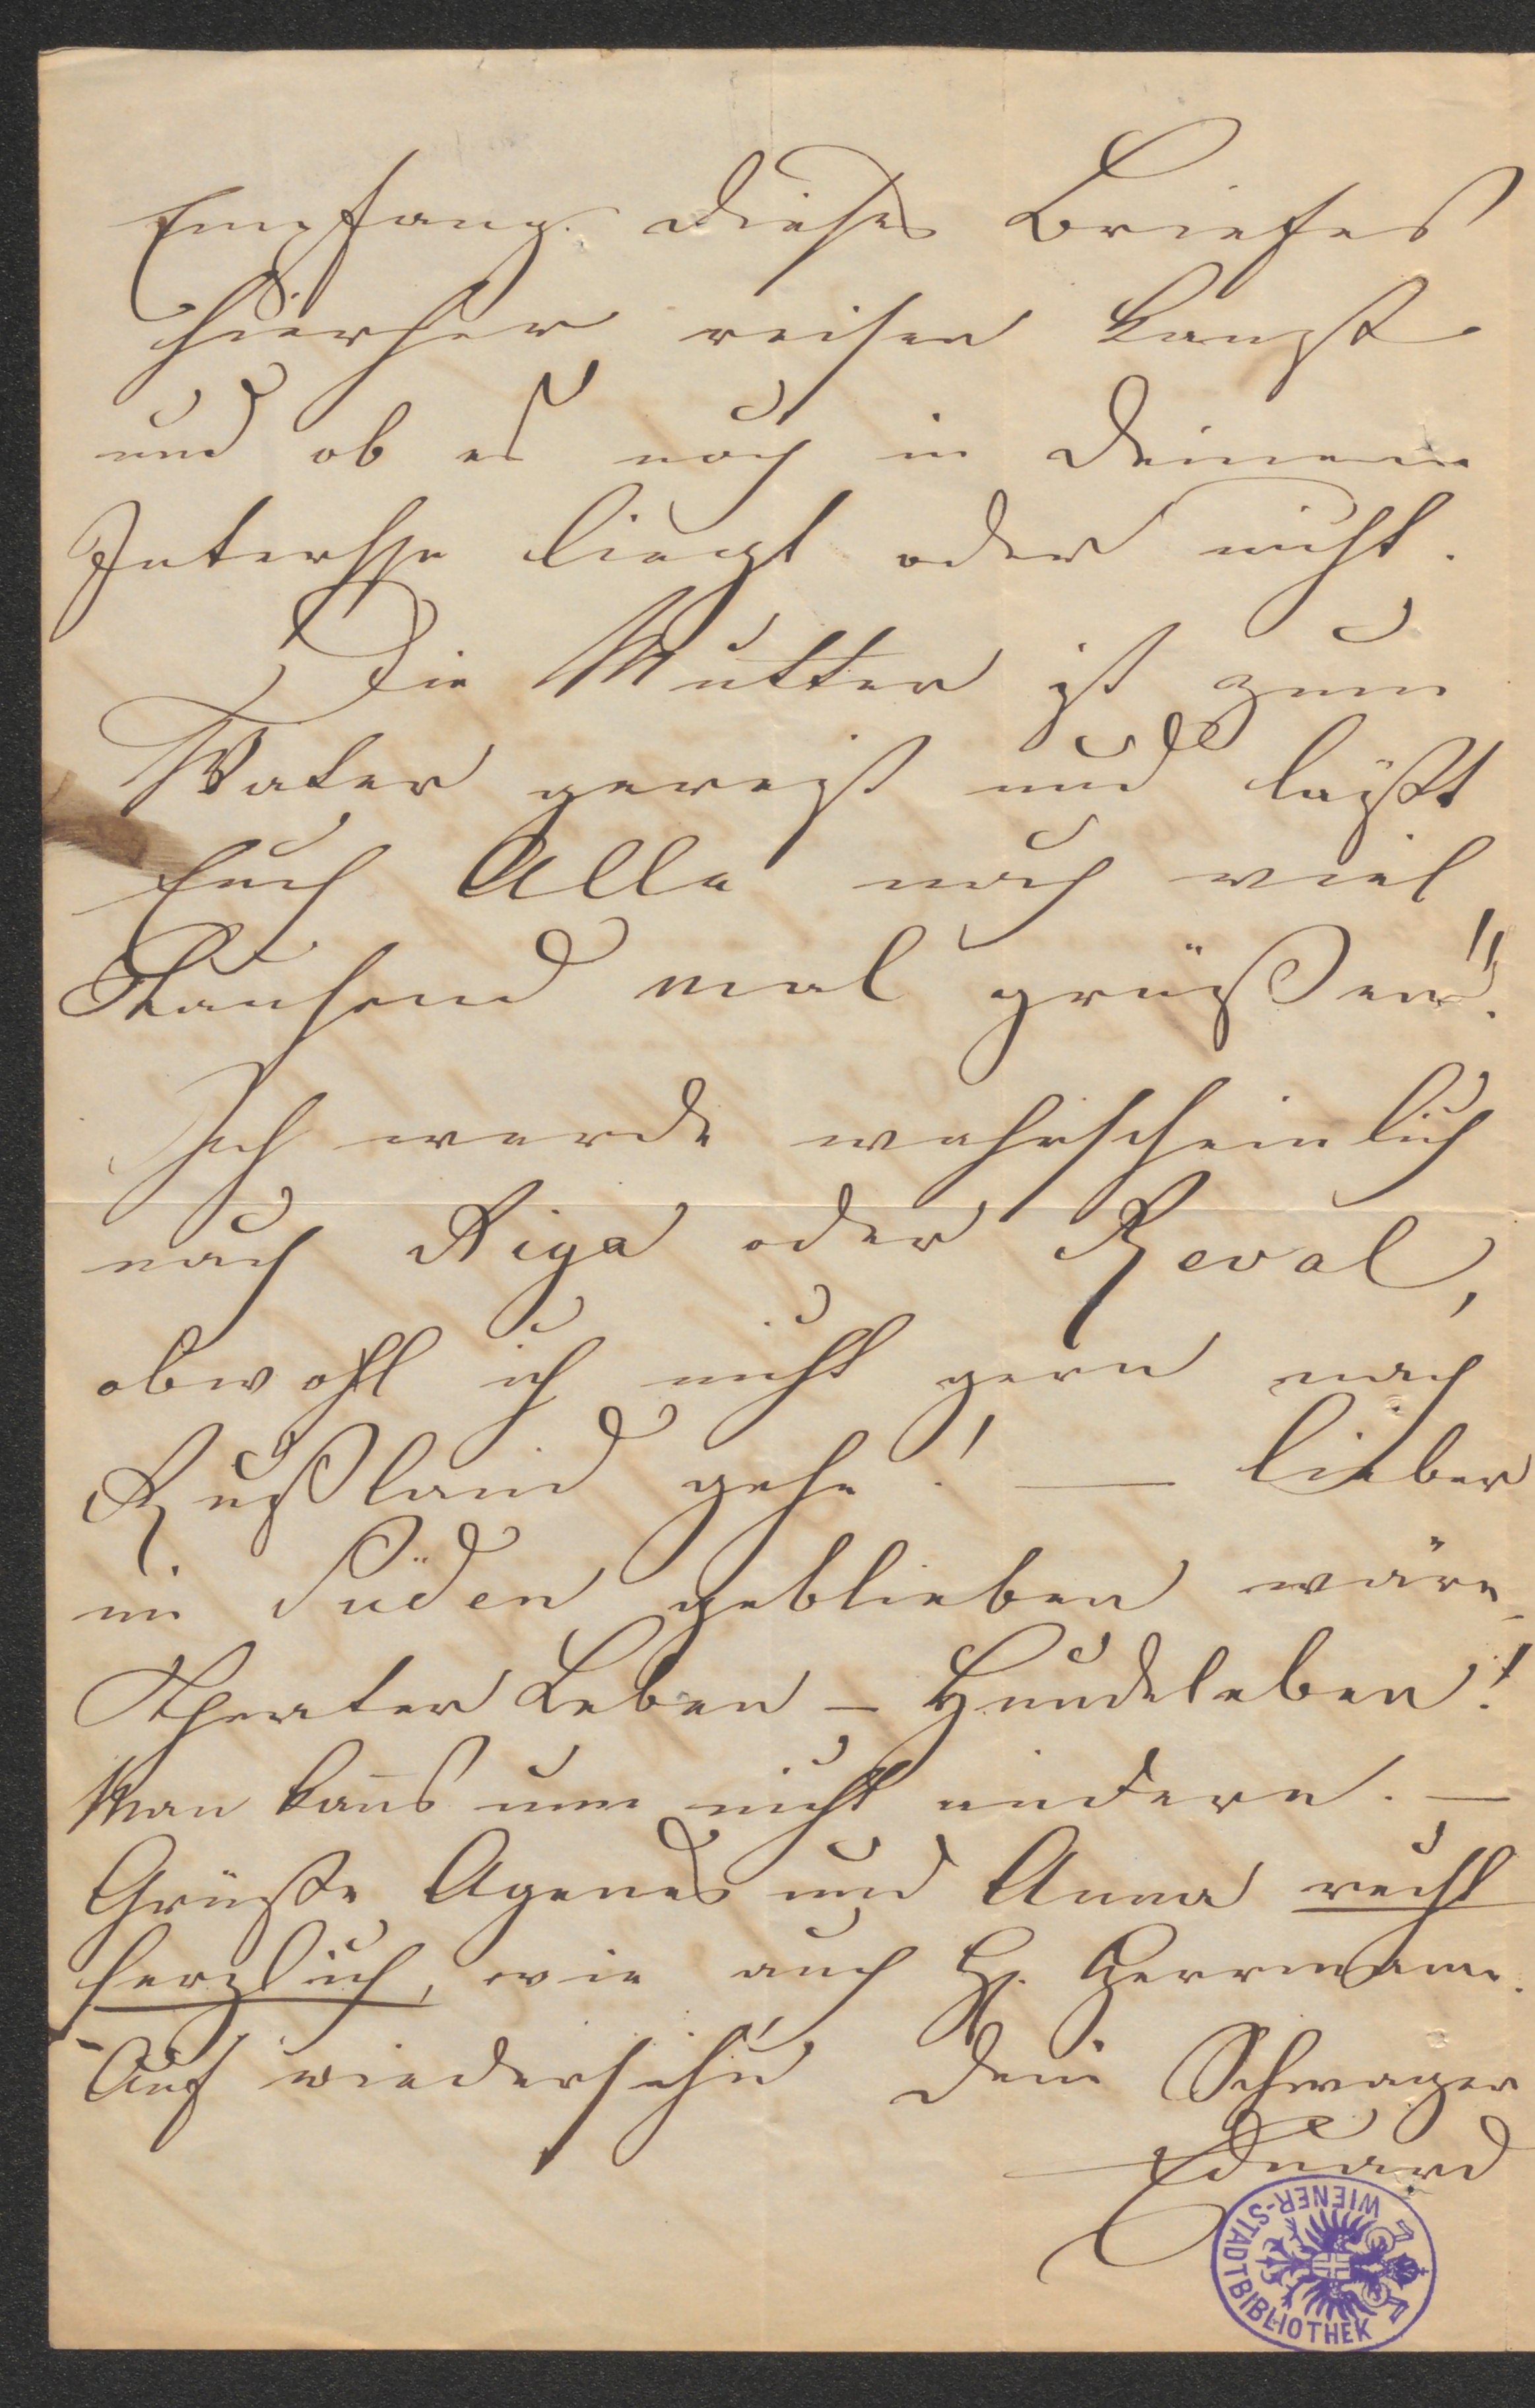 Empfang dieses Briefes
hierher reisen kanst
und ob es noch in Deinem
Intersse liegt oder nicht.
Die Mutter ist zum
Vater gereist und läßt
Euch Alle noch viel
Tausend mal grüßen!!
Ich werde wahrscheinlich
nach Riga oder Reval,
obwohl ich nicht gern nach
Rußland gehe! — lieber
im Süden geblieben wäre
Theater Leben – Hundeleben!
Man kanns nun nicht ändern. —
Grüße Agenes und Anna recht
herzlich, wie auch H. Herrmann.
Auf wiedersehn Dein Schwager
Eduard
WIENER-STADTBIBLIOTHEK